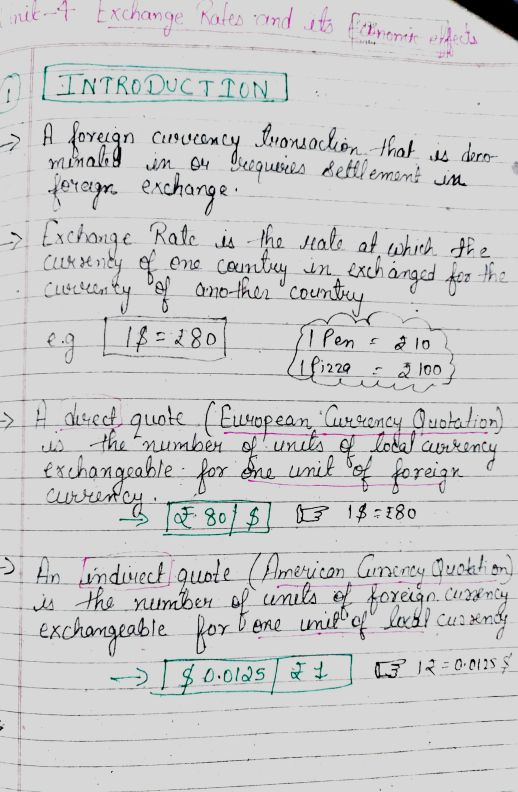 Unit-4 Exchange Rates and its Economic effects
1 INTRODUCTION
→ A foreign currency transaction that is deno-
minated in or requires settlement in
foreign exchange.
→ Exchange Rate is the rate at which the
currency of one country in exchanged for the
currency of another country
e.g 1$ = ₹80
1 Pen = ₹10
1 Pizza = ₹100
→ A direct quote (European Currency Quotation)
is the number of units of local currency
exchangeable for one unit of foreign
currency.
→ ₹80/$ ☞ 1$ = ₹80
→ An indirect quote (American Currency Quotation)
is the number of units of foreign currency
exchangeable for one unit of local currency
→ $0.0125/₹1 ☞ 1₹ = 0.0125$